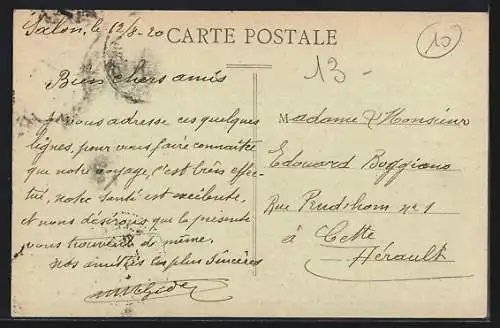 Salon, le 12/8-20
CARTE POSTALE
10
13-
Bien chers amis
Je vous adresse ces quelques
lignes, pour vous faire connaître
que notre voyage, s'est très effec-
tué, notre santé est excélente,
et nous désirons que la présente
vous trouvent de même.
Nos amitiés les plus sincères
Madame & Monsieur
Edouard Boggiano
Rue Prud'hom nº 1
à Cette
Hérault